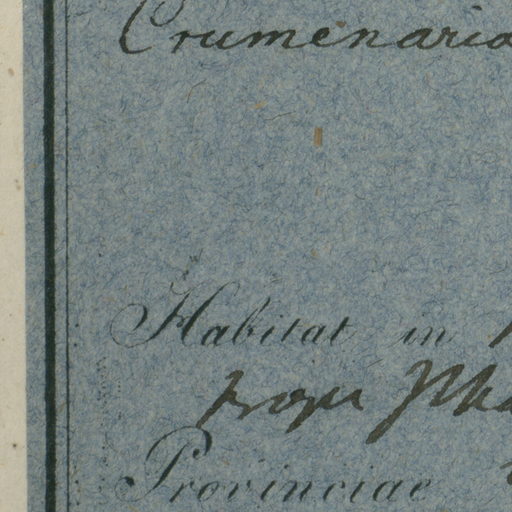 Crumenaria
Habitat in
prope Ilha
Provinciae